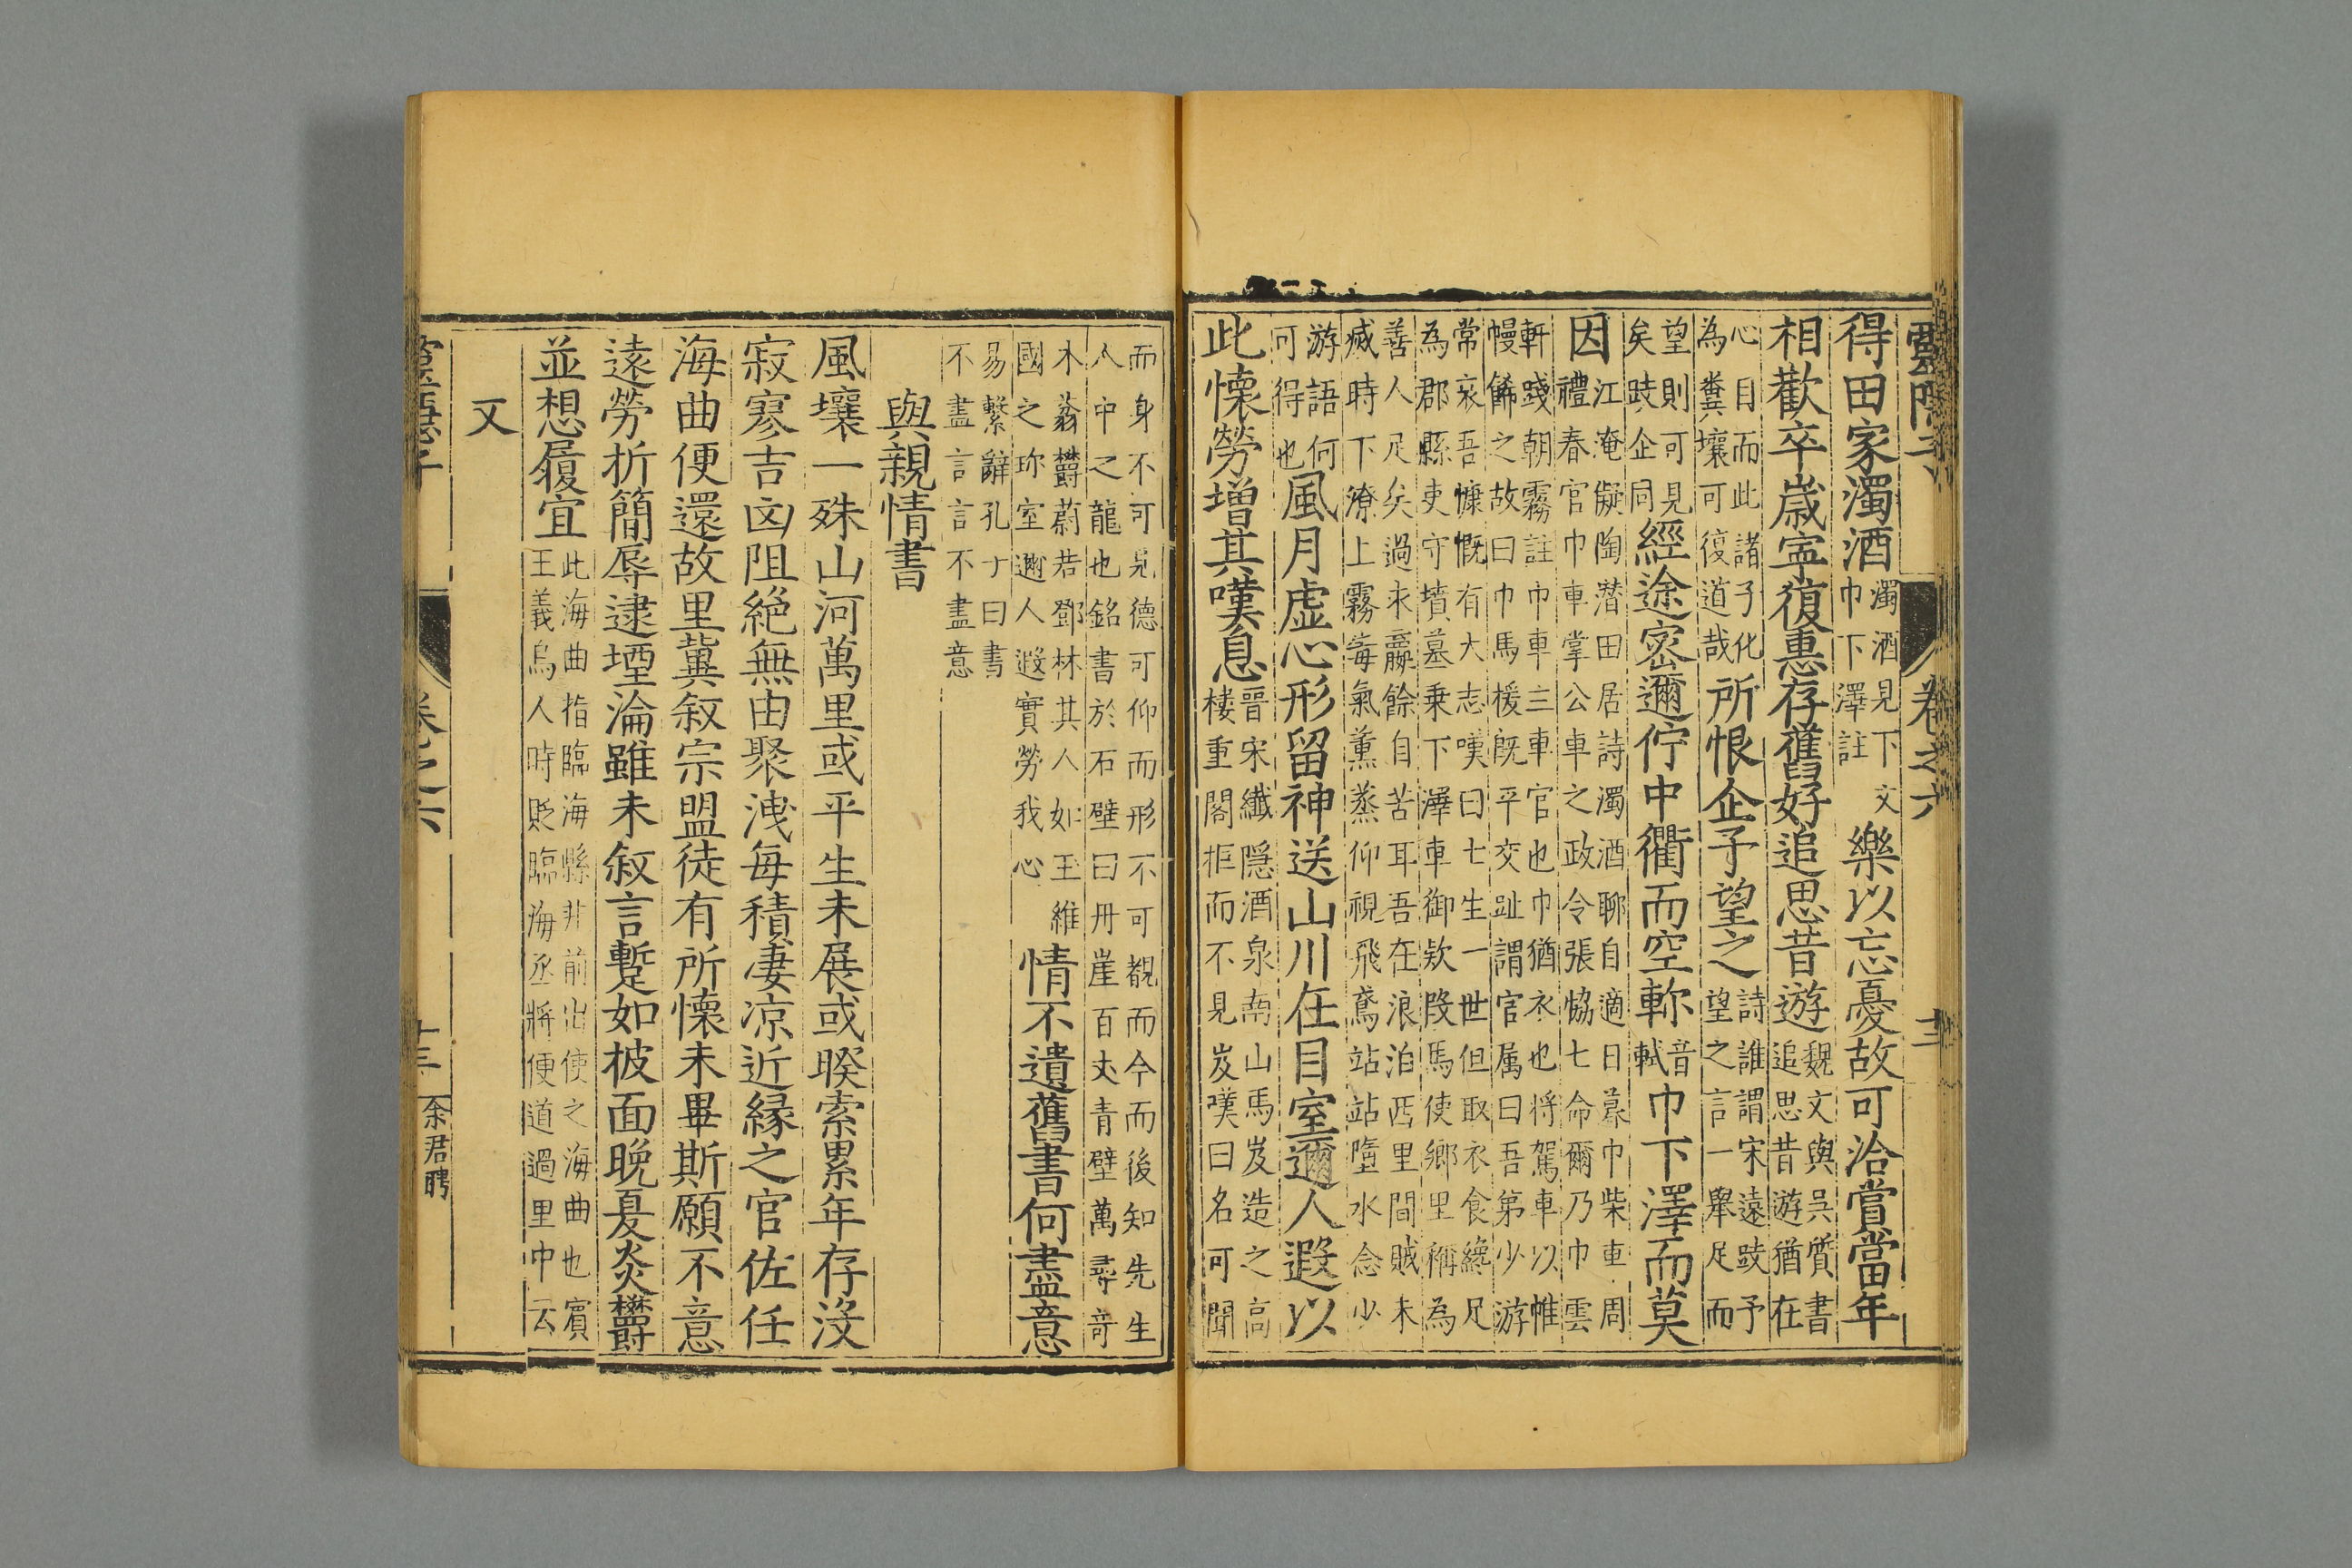 得田家濁酒濁酒見下文巾下澤註樂以忘憂故可洽賞當年
相歡卒歲寧復惠存舊好追思昔遊魏文與吳質書追思昔游猶在
心目而此諸子化為糞壤可復道哉所恨企予望之詩誰謂宋遠跂予望之言一舉足而
望則可見矣跂企同經途密邇佇中衢而空軫音軾巾下澤而莫
因江淹儗陶潛田居詩濁酒聊自適日暮巾柴車周禮春官巾車掌公車之政令張恊七命爾乃巾雲
軒踐朝霧註巾車主車官也巾猶衣也將駕車以帷幔餙之故曰巾馬援既平交趾謂官属曰吾第少游
常哀吾慷慨有大志嘆曰士生一世但取衣食纔足為郡縣吏守墳墓乗下澤車御欵段馬使鄉里稱為
善人足矣過求嬴餘自苦耳吾在浪泊西里間賊未滅時下潦上霧毒氣薰蒸仰視飛鳶站站墮水念少
游語何可得也風月虛心形留神送山川在目室邇人遐以
此懐勞増其嘆息晉宋纖隱酒泉南山馬岌造之高樓重閣拒而不見岌嘆曰名可聞
而身不可見德可仰而形不可覩而今而後知先生人中之龍也銘書於石壁曰丹崖百丈青壁萬尋竒
木蓊欝蔚若鄧林其人如玉維國之珎室邇人遐實勞我心情不遺舊書何盡意
易繫辭孔子曰書不盡言言不盡意
與親情書
風壤一殊山河萬里或平生未展或暌索累年存沒
寂寥吉凶阻絶無由聚洩每積凄凉近縁之官佐任
海曲便還故里冀叙宗盟徒有所懐未畢斯願不意
遠勞折簡辱逮堙淪雖未叙言蹔如披面晚夏炎欝
並想履宜此海曲指臨海縣非前出使之海曲也賓王義烏人時貶臨海丞將便道過里中云
又
卷之六
十三
余君聘